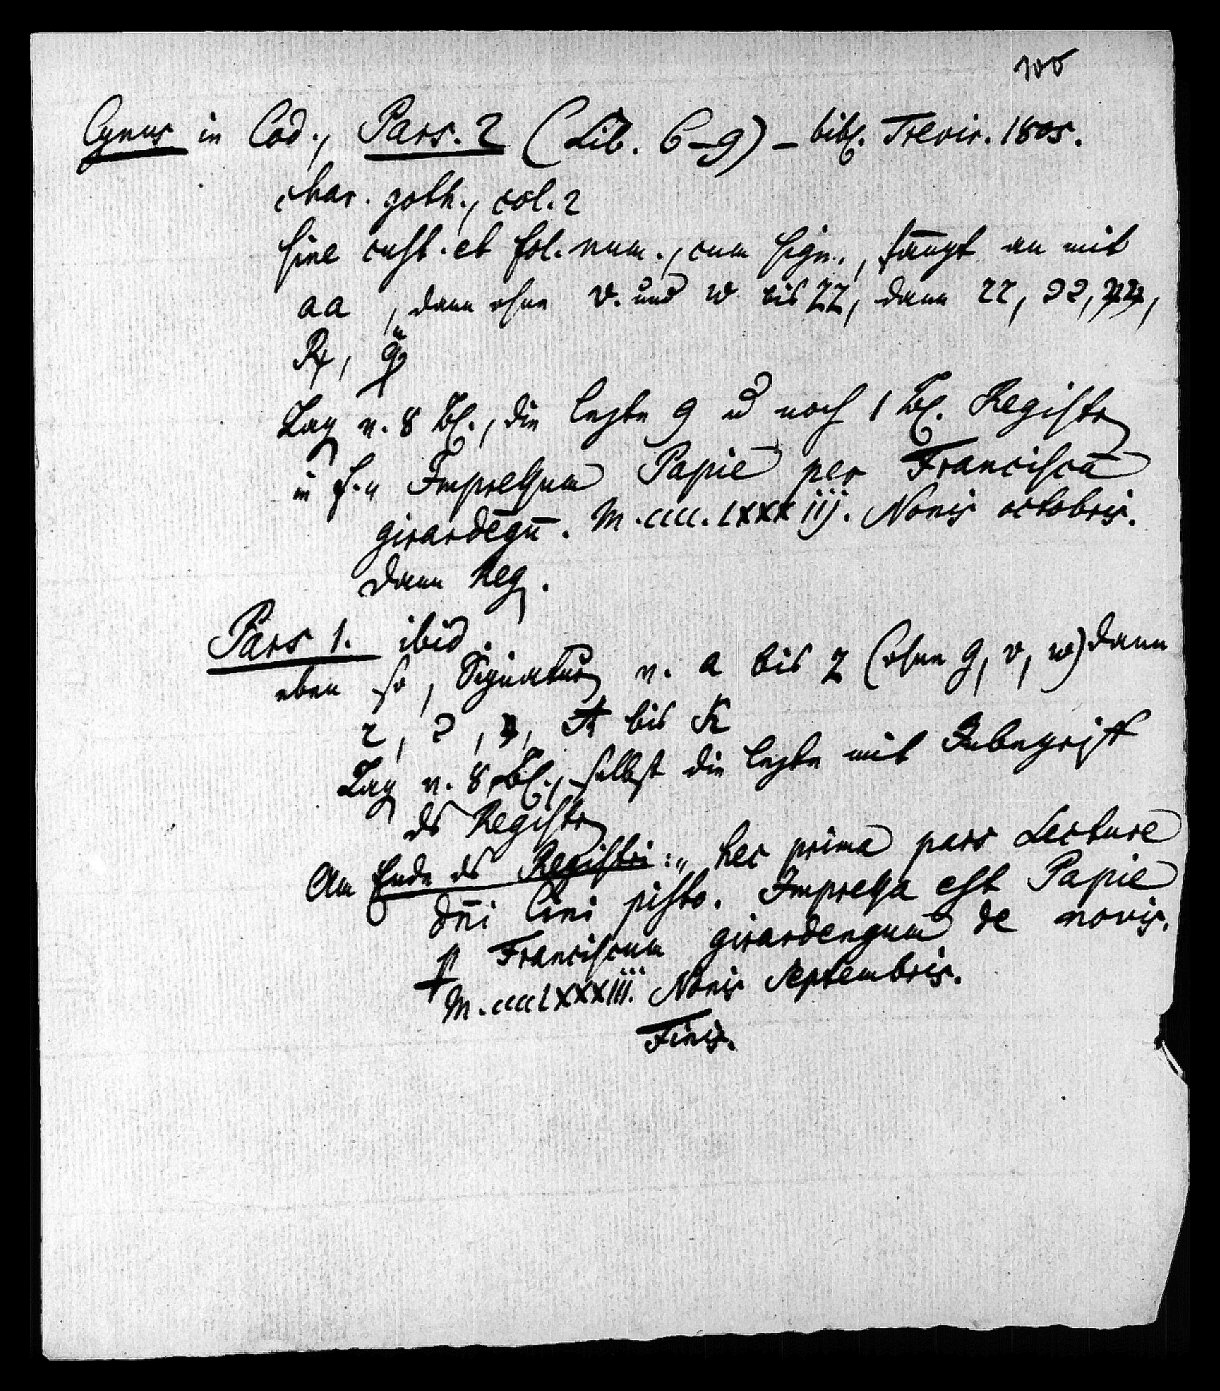 100
Cynus in Cod., Pars. 2 (Lib. 6-9) - bibl. Trevir. 1805.
char. goth., col. 2
sine cust. et fol. num., cum sign., fängt an mit
aa, dann ohne v. und w bis zz, dann
Lag v. 8 Bl., die lezte 9 u noch 1 Bl. Register
in f. „ Impressum Papie per Franciscū
girardēgū. M.cccc.lxxxiij. Nonis octobris.
dann Reg.
Pars 1. ibid.
eben so, Signatur v. a bis z (ohne g, v, w) dann
bis K
Lag v. 8 Bl., selbst die lezte mit Inbegriff
ds Register
Am Ende ds Registri: „ hec prima pars Lecture
dñi Cini pisto. Impressa est Papie
p Franciscum girardengum de novis.
M.cccclxxxiii. Nonis Septembris.
Finis.